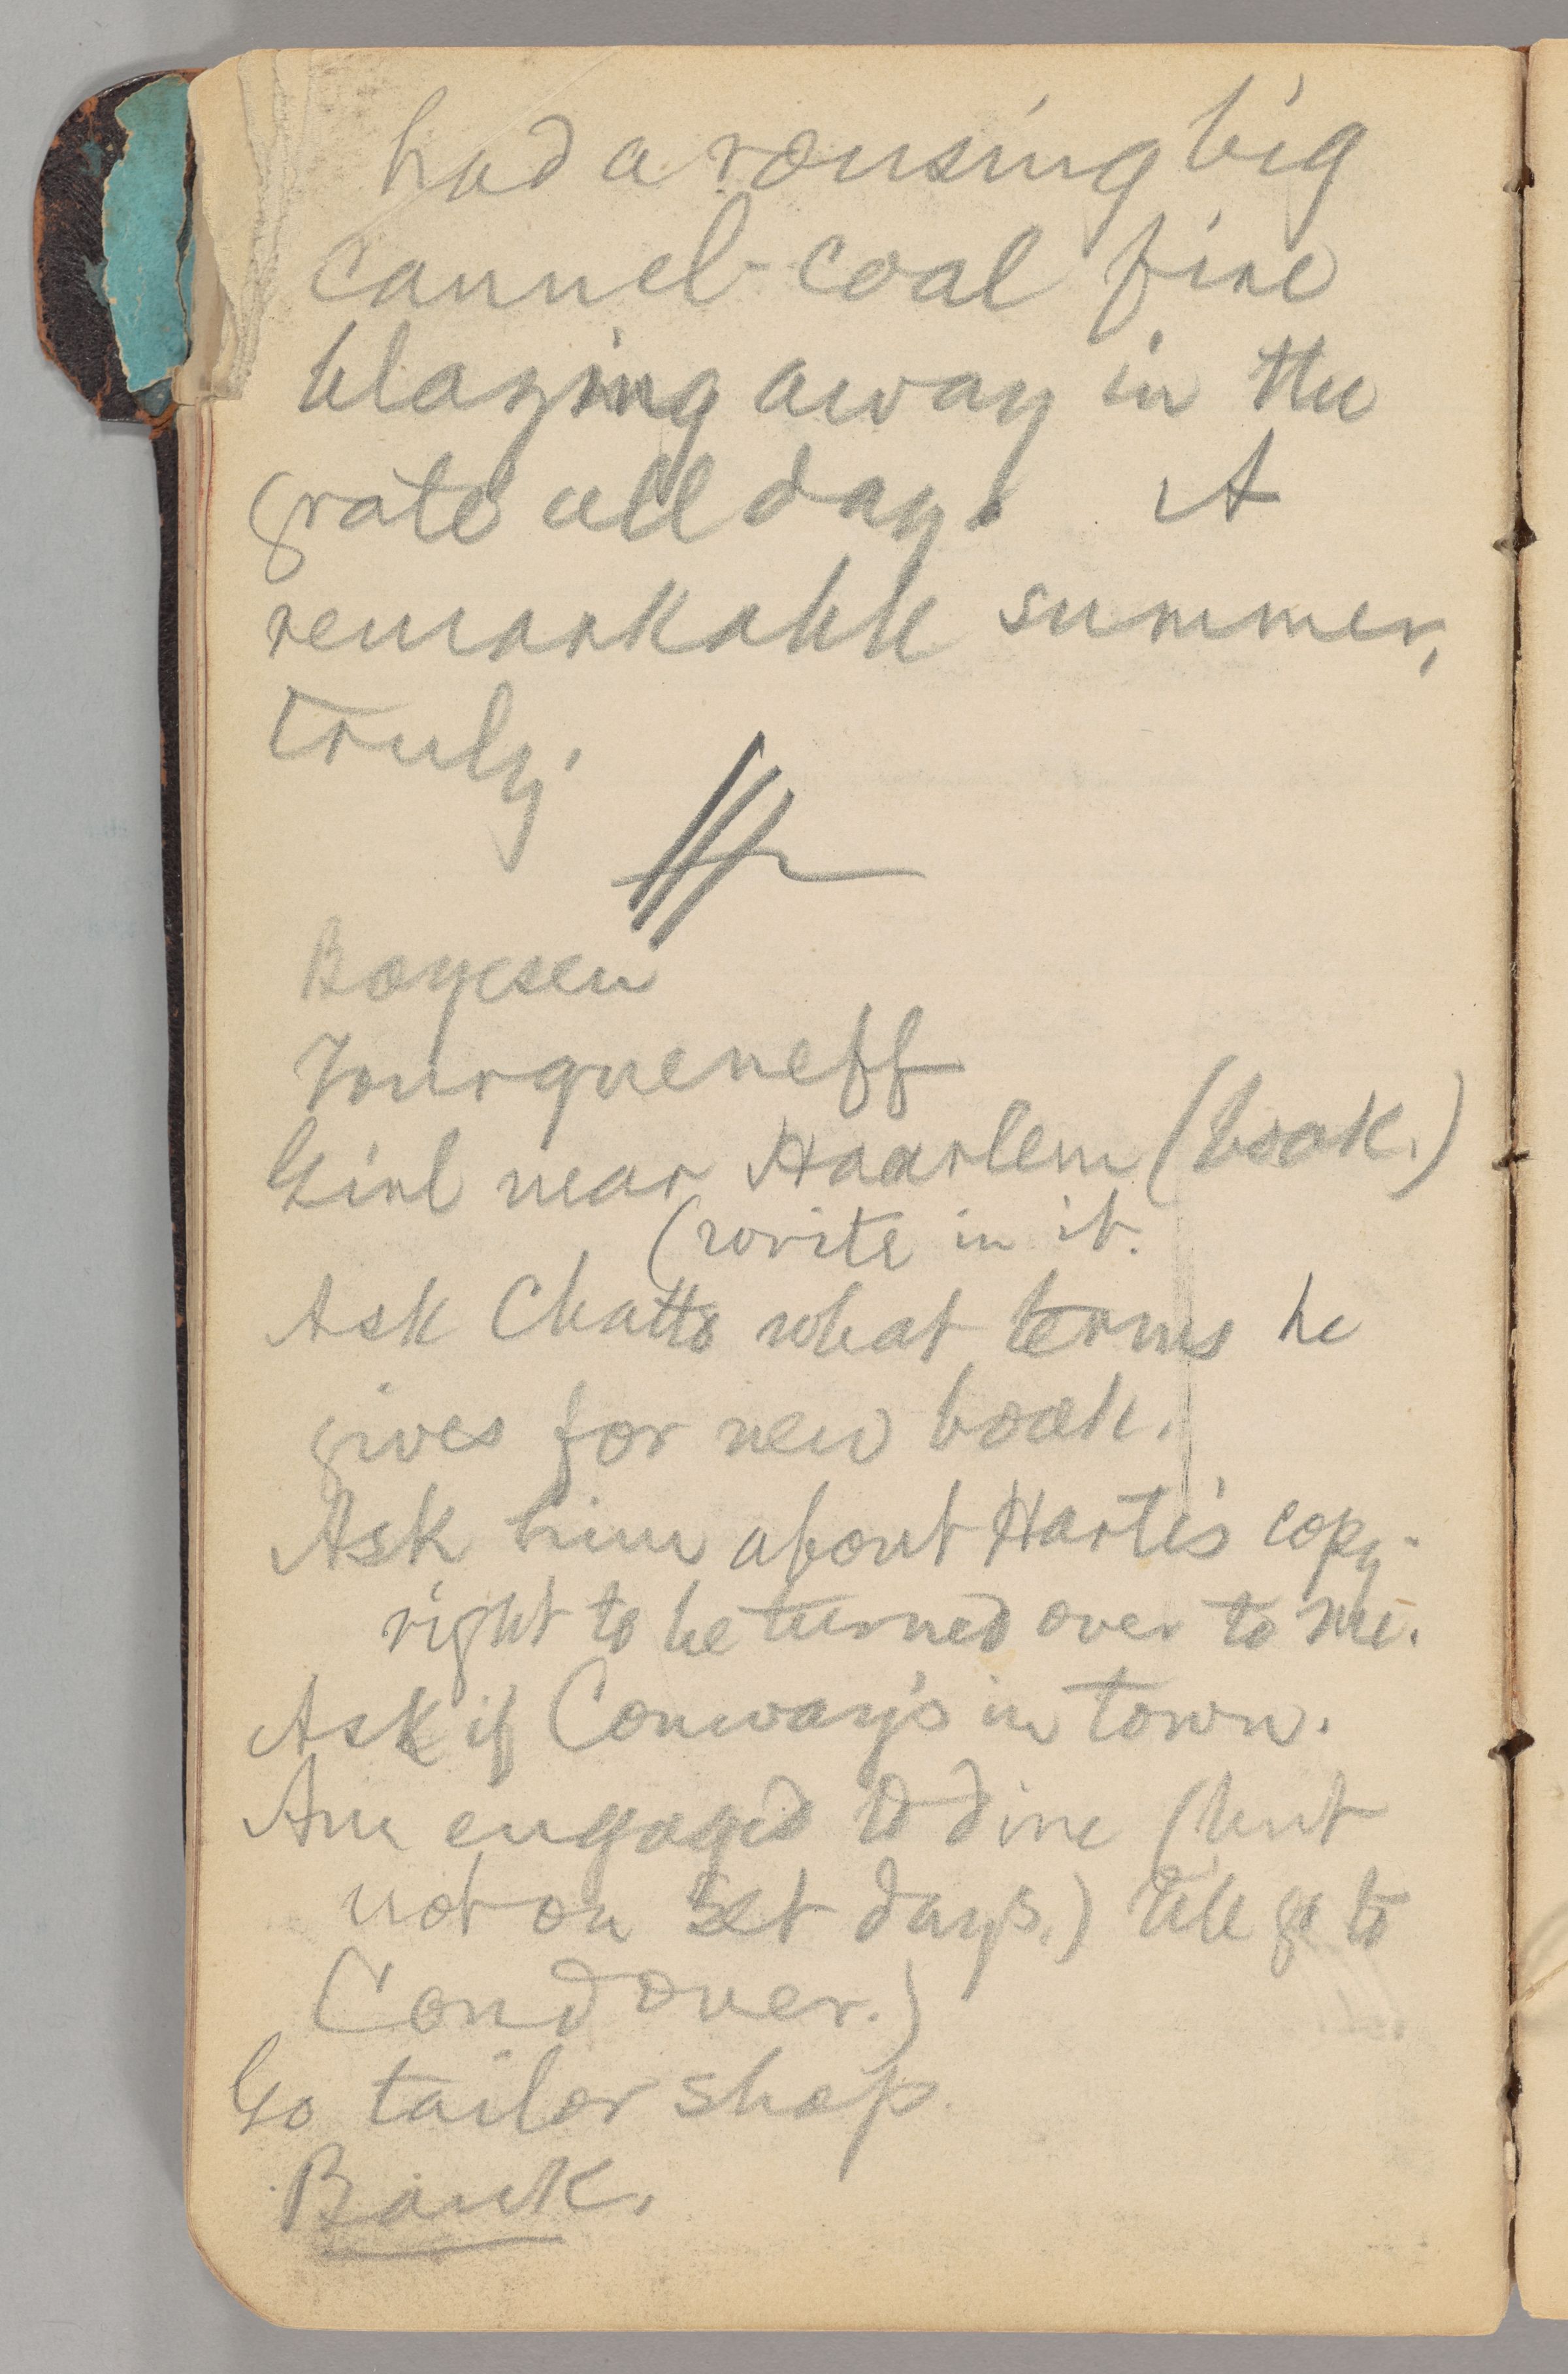 had a rousing big
cannel-coal fire
blazing away in the
grate all day. A
remarkable summer,
truly.
Boyesen
Tourgueneff
Girl near Haarlem (book.)
(write in it.
Ask Chatto what terms he
gives for new book.
Ask him about Harte's copy-
right to be turned over to me.
Ask if Conway's in town.
Am engaged to dine (but
not on set days.) till go to
Condover.)
Go tailor shop.
Bank.